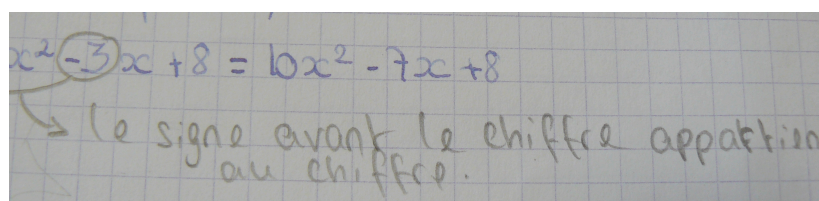 x² -3x +8 = 10x² - 7x +8
le signe avant le chiffre appartien
au chiffre.